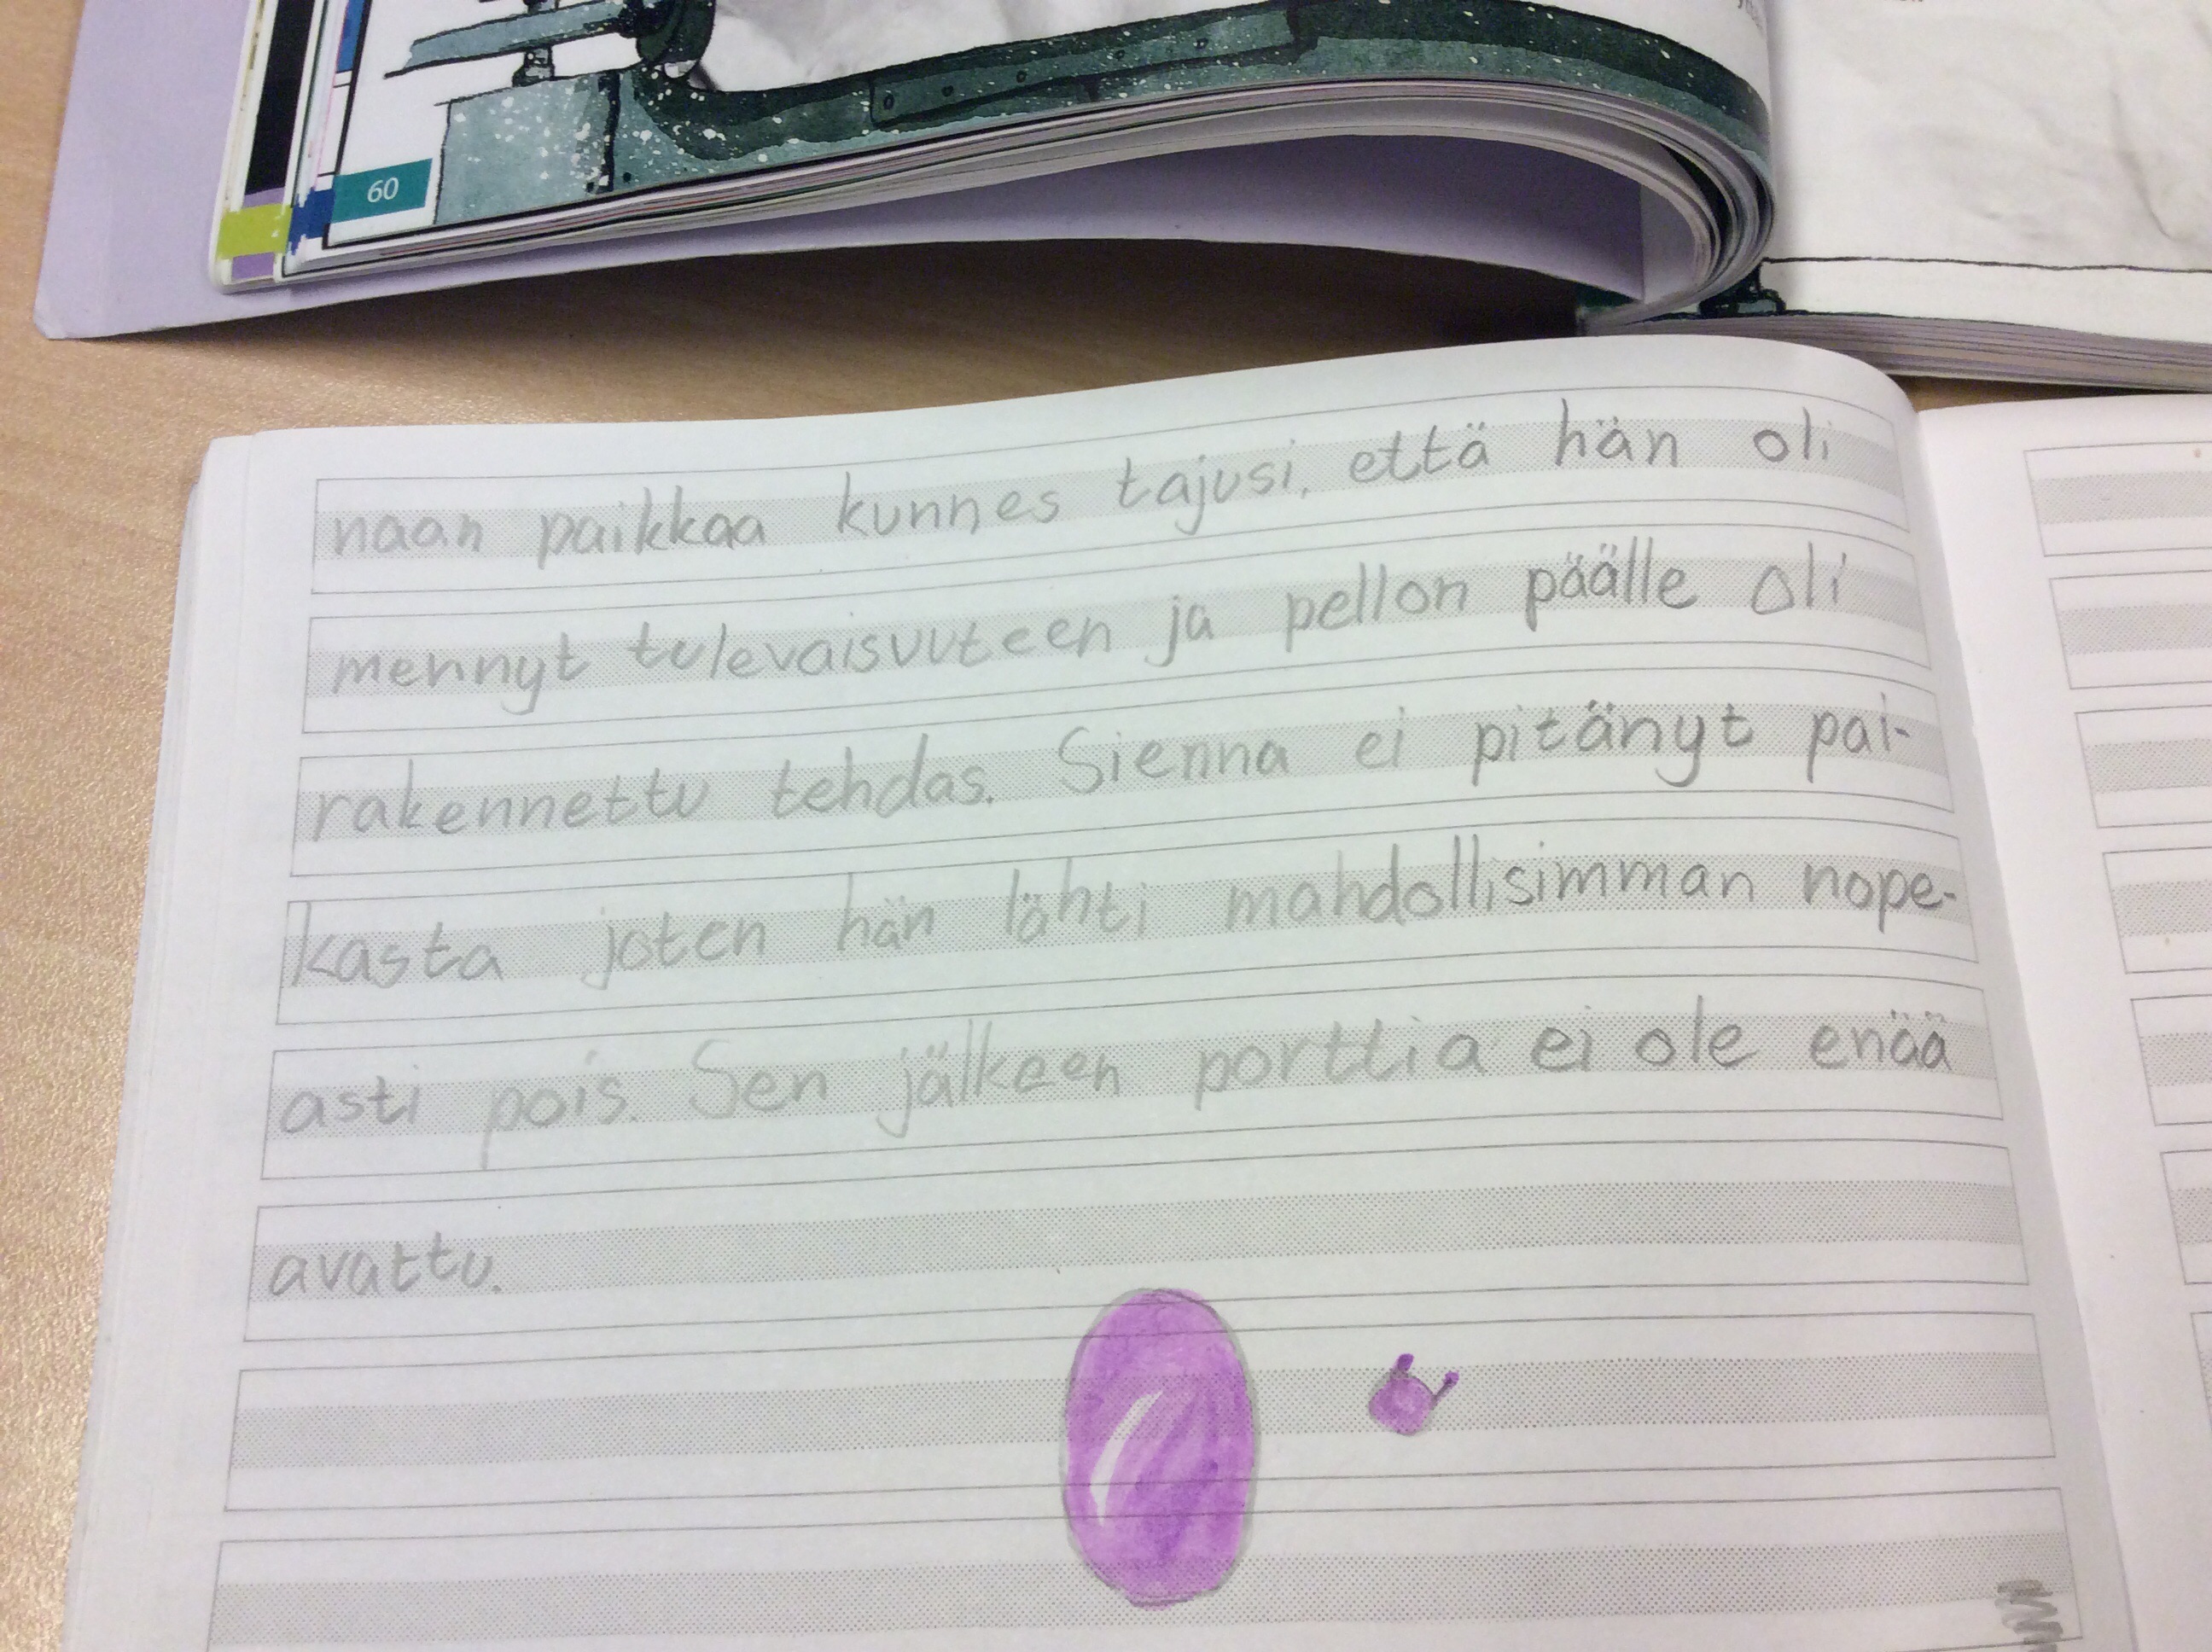 60
naan paikkaa kunnes tajusi, että hän oli
mennyt tulevaisuuteen ja pellon päälle oli
rakennettu tehdas. Sienna ei pitänyt pai-
kasta joten hän lähti mahdollisimman nope-
asti pois. Sen jälkeen porttia ei ole enää
avattu.